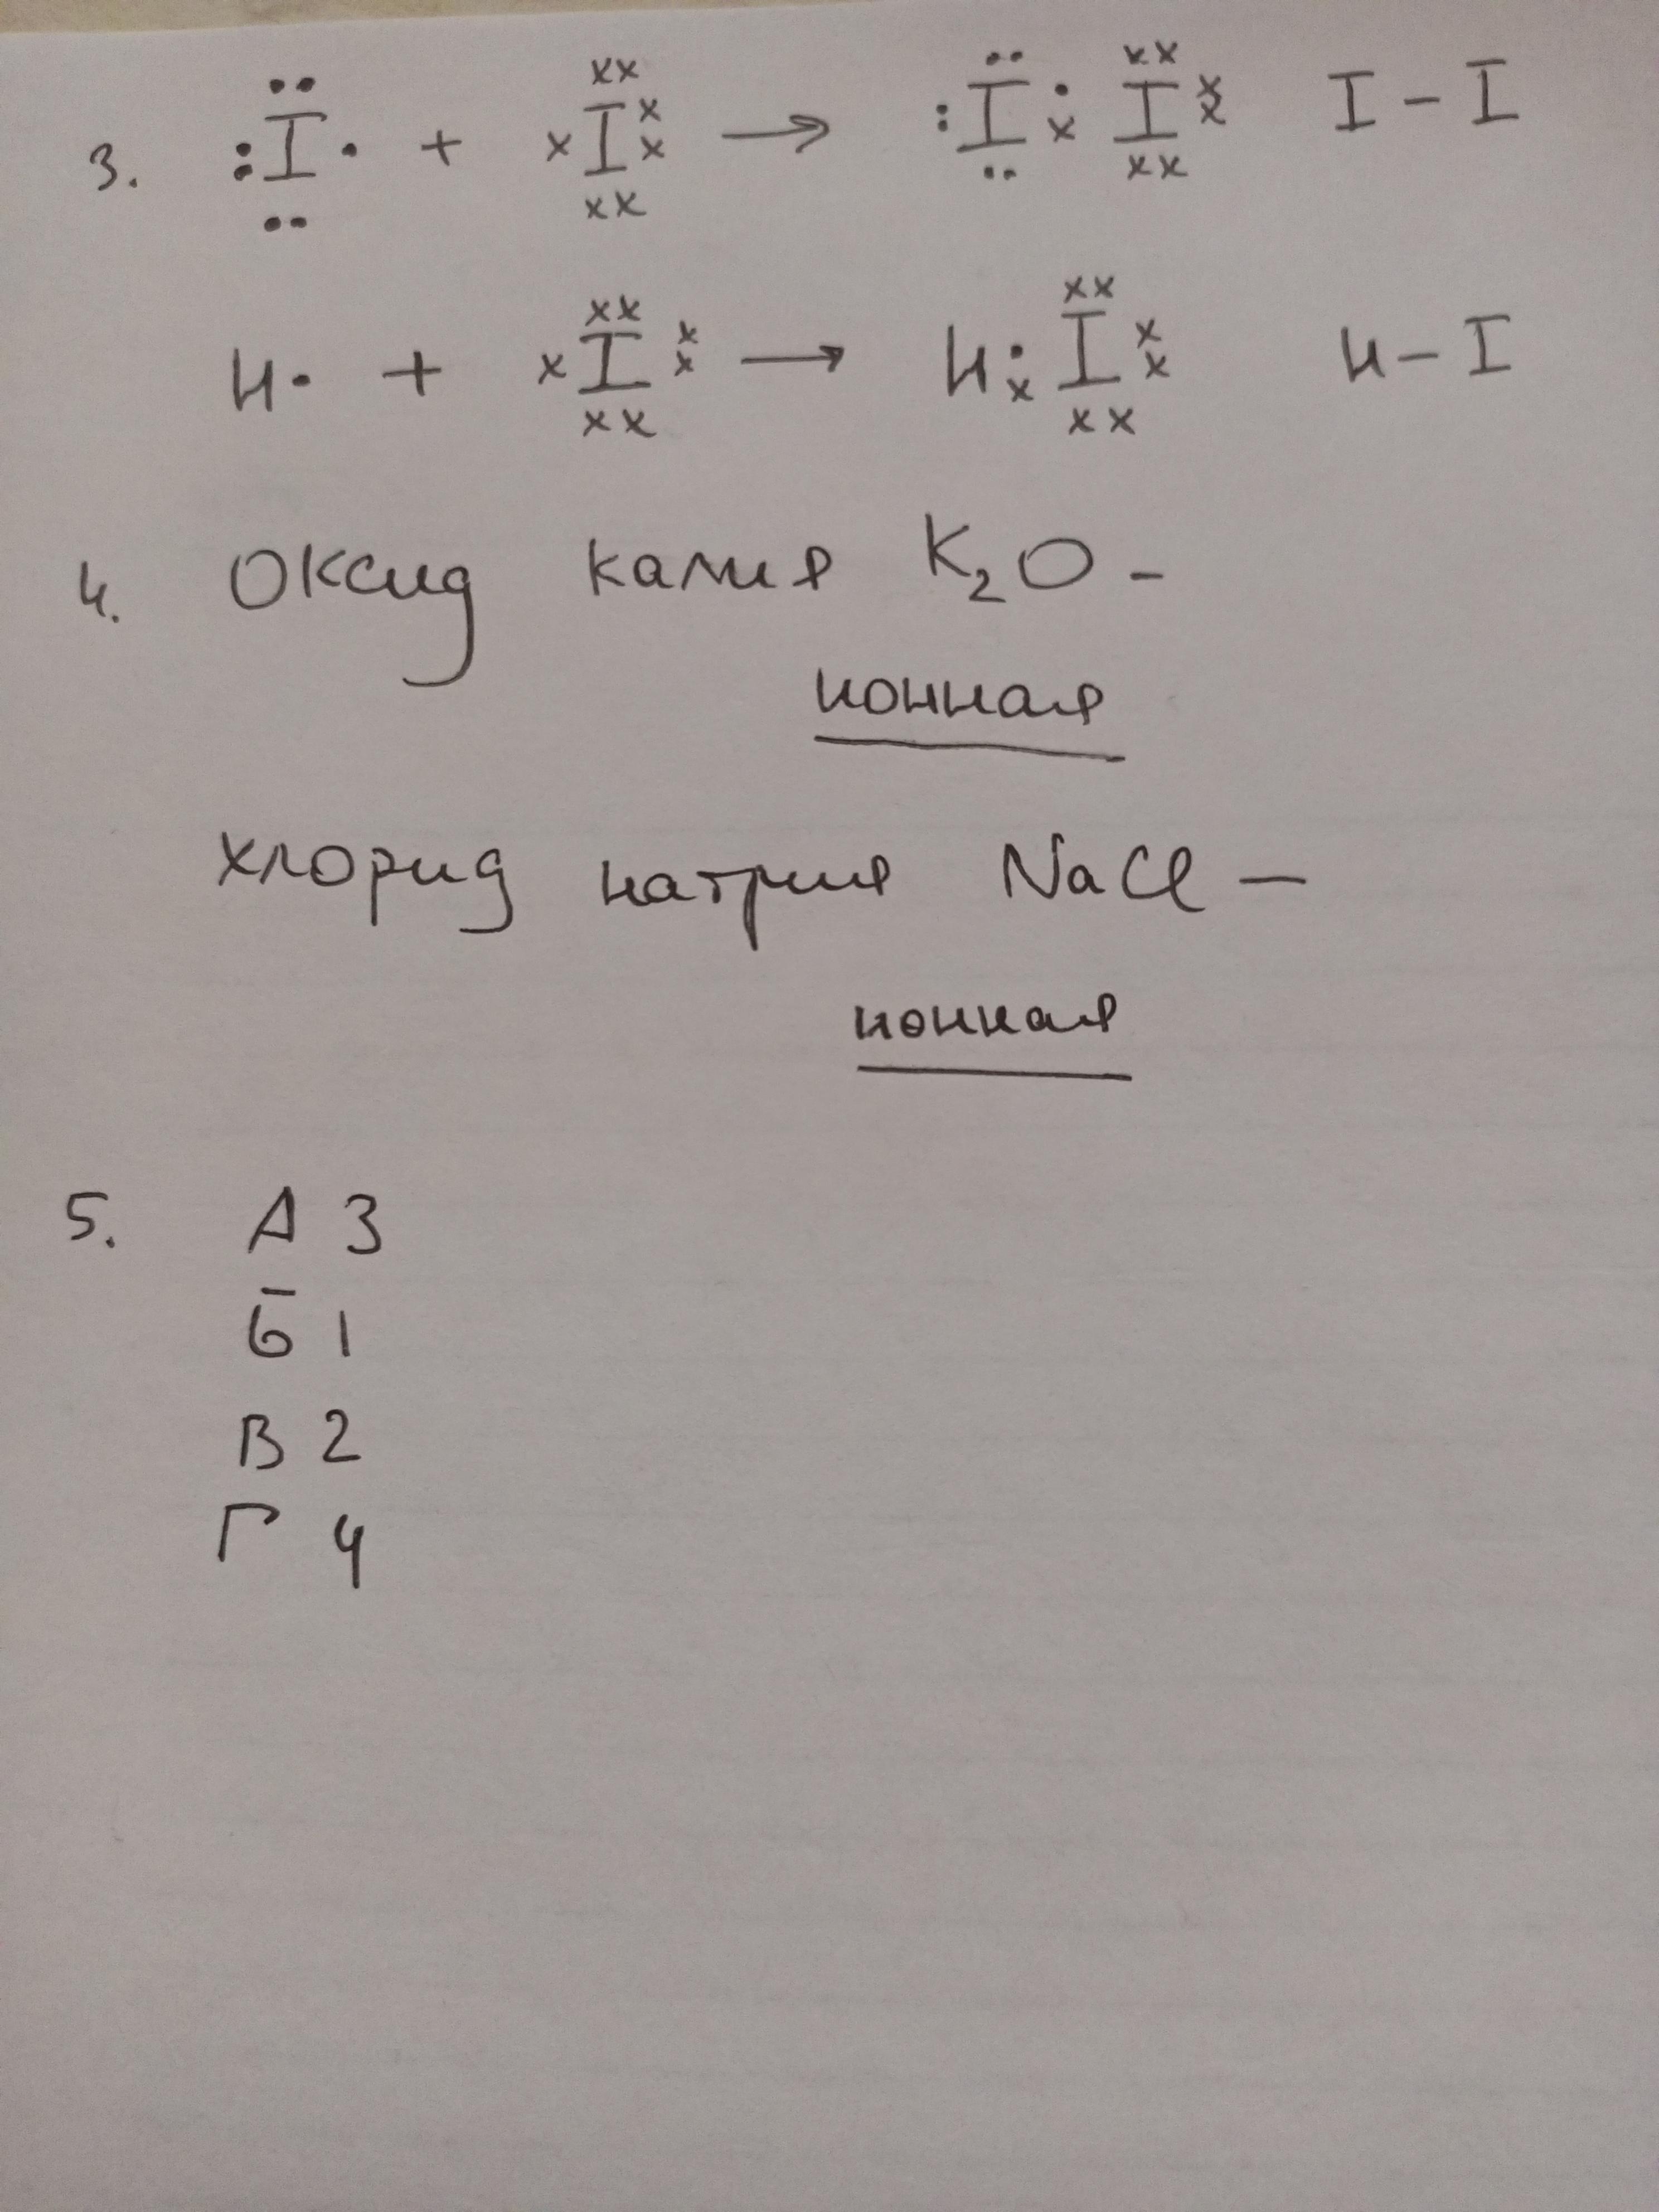 3. :I· + xI xx → :I·x I xx I – I
H· + xI xx → H:x I xx H – I
4. Оксид калия K₂O –
ионная
хлорид натрия NaCl –
ионная
5. А 3
Б 1
В 2
Г 4